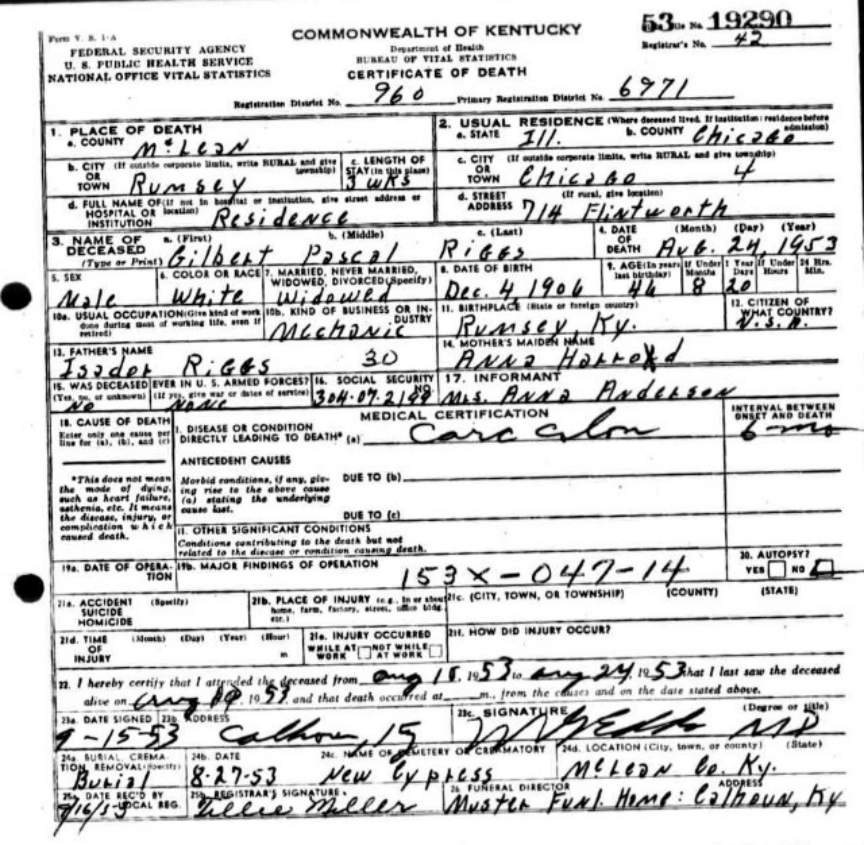 Form V. S. 1-A
COMMONWEALTH OF KENTUCKY
53 No. 19290
FEDERAL SECURITY AGENCY
Department of Health
Registrar's No. 42
U. S. PUBLIC HEALTH SERVICE
BUREAU OF VITAL STATISTICS
NATIONAL OFFICE VITAL STATISTICS
CERTIFICATE OF DEATH
Registration District No. 960 Primary Registration District No. 6971
1. PLACE OF DEATH
a. COUNTY McLean
2. USUAL RESIDENCE (Where deceased lived. If institution: residence before admission)
a. STATE Ill. b. COUNTY Chicago
b. CITY OR TOWN (If outside corporate limits, write RURAL and give township) Rumsey
c. LENGTH OF STAY (in this place) 3 wks
c. CITY OR TOWN (If outside corporate limits, write RURAL and give township) Chicago 4
d. FULL NAME OF HOSPITAL OR INSTITUTION (If not in hospital or institution, give street address or location) Residence
d. STREET ADDRESS (If rural, give location) 714 Flintworth
3. NAME OF DECEASED (Type or Print) a. (First) Gilbert b. (Middle) Pascal c. (Last) Riggs
4. DATE OF DEATH (Month) (Day) (Year) Aug. 24, 1953
5. SEX Male
6. COLOR OR RACE White
7. MARRIED, NEVER MARRIED, WIDOWED, DIVORCED (Specify) Widowed
8. DATE OF BIRTH Dec. 4, 1906
9. AGE (In years last birthday) 46 If Under 1 Year Months 8 Days 20 If Under 24 Hrs. Hours Min.
10a. USUAL OCCUPATION (Give kind of work done during most of working life, even if retired)
10b. KIND OF BUSINESS OR INDUSTRY Mechanic
11. BIRTHPLACE (State or foreign country) Rumsey, Ky.
12. CITIZEN OF WHAT COUNTRY? U.S.A.
13. FATHER'S NAME Isador Riggs 30
14. MOTHER'S MAIDEN NAME Anna
15. WAS DECEASED EVER IN U. S. ARMED FORCES? (Yes, no, or unknown) No (If yes, give war or dates of service) None
16. SOCIAL SECURITY NO. 304-07-2199
17. INFORMANT Mrs. Anna Anderson
MEDICAL CERTIFICATION
18. CAUSE OF DEATH
Enter only one cause per line for (a), (b), and (c)
I. DISEASE OR CONDITION DIRECTLY LEADING TO DEATH* (a) Carc Colon
INTERVAL BETWEEN ONSET AND DEATH 6 mo
*This does not mean the mode of dying, such as heart failure, asthenia, etc. It means the disease, injury, or complication which caused death.
ANTECEDENT CAUSES
Morbid conditions, if any, giving rise to the above cause (a) stating the underlying cause last.
DUE TO (b)
DUE TO (c)
II. OTHER SIGNIFICANT CONDITIONS
Conditions contributing to the death but not related to the disease or condition causing death.
19a. DATE OF OPERATION
19b. MAJOR FINDINGS OF OPERATION
153X-047-14
20. AUTOPSY?
YES NO
21a. ACCIDENT SUICIDE HOMICIDE (Specify)
21b. PLACE OF INJURY (e.g., in or about home, farm, factory, street, office bldg. etc.)
21c. (CITY, TOWN, OR TOWNSHIP) (COUNTY) (STATE)
21d. TIME OF INJURY (Month) (Day) (Year) (Hour) m
21e. INJURY OCCURRED
WHILE AT WORK NOT WHILE AT WORK
21f. HOW DID INJURY OCCUR?
22. I hereby certify that I attended the deceased from Aug 18, 1953 to Aug 24, 1953 that I last saw the deceased
alive on Aug 1953 and that death occurred at m., from the causes and on the date stated above.
23a. DATE SIGNED 9-15-53
23b. ADDRESS Calhoun,
23c. SIGNATURE (Degree or title) MD
24a. BURIAL, CREMATION, REMOVAL (Specify) Burial
24b. DATE 8-27-53
24c. NAME OF CEMETERY OR CREMATORY New Cypress
24d. LOCATION (City, town, or county) (State) McLean Co. Ky.
25a. DATE REC'D BY LOCAL REG. 9/16/53
25b. REGISTRAR'S SIGNATURE Tillie Miller
26. FUNERAL DIRECTOR ADDRESS Muster Funl. Home: Calhoun, Ky